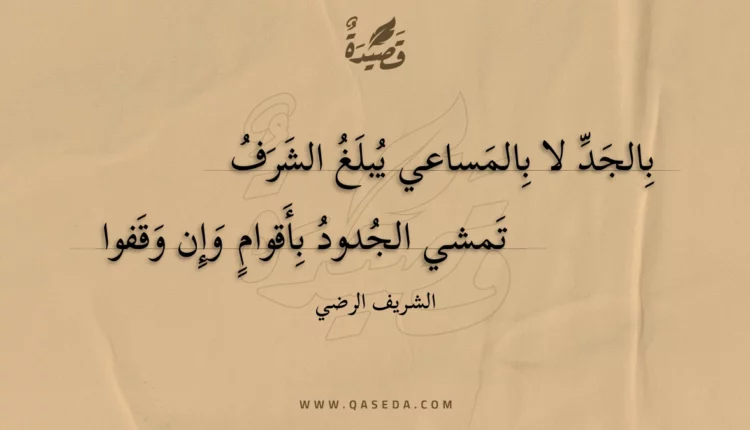 قَصِيدَةٌ
بِالجَدِّ لا بِالمَساعي يُبلَغُ الشَرَفُ
تَمشي الجُدودُ بِأَقوامٍ وَإِن وَقَفوا
الشريف الرضي
WWW.QASEDA.COM